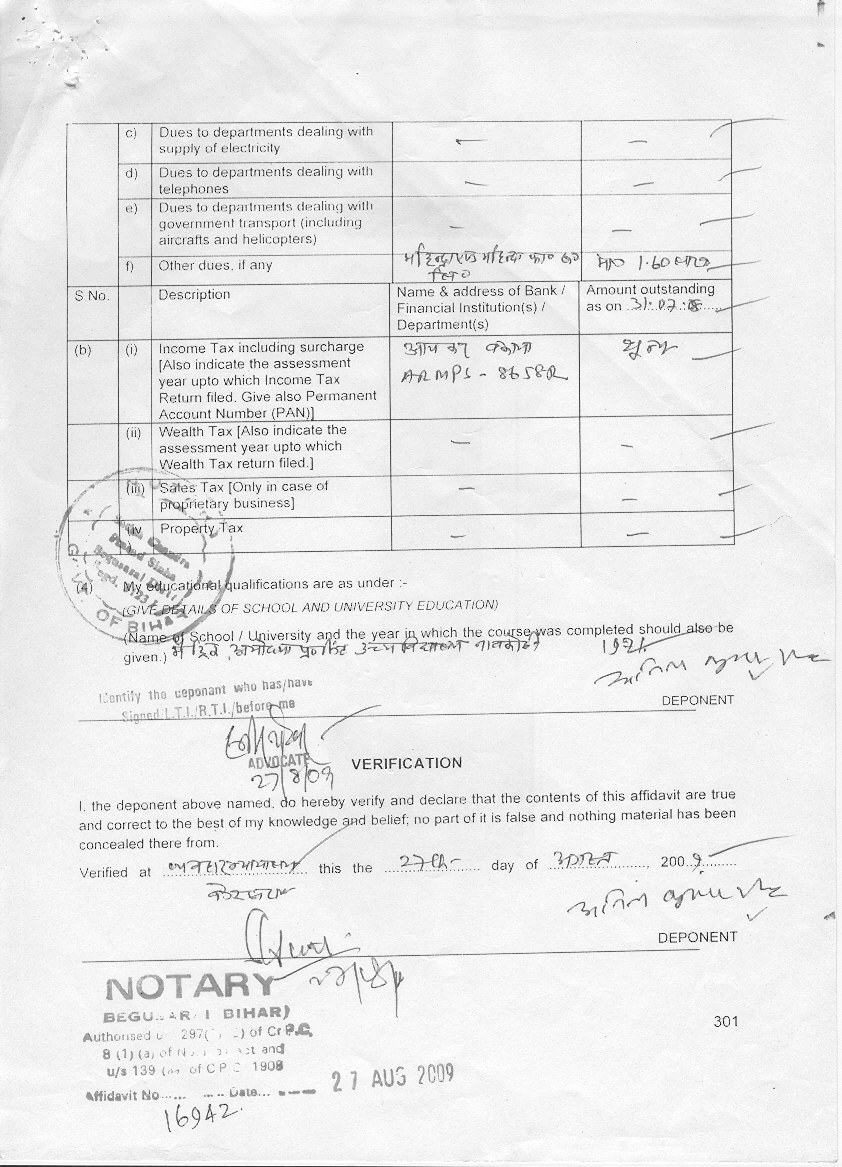 c) Dues to departments dealing with
supply of electricity — —
d) Dues to departments dealing with
telephones — —
e) Dues to departments dealing with
government transport (including
aircrafts and helicopters) — —
f) Other dues, if any 1.60 लाख
S.No. Description Name & address of Bank / Amount outstanding
Financial Institution(s) / as on 31.07.
Department(s)
(b) (i) Income Tax including surcharge आय कर शून्य
[Also indicate the assessment
year upto which Income Tax
Return filed. Give also Permanent
Account Number (PAN)]
(ii) Wealth Tax [Also indicate the
assessment year upto which — —
Wealth Tax return filed.]
(iii) Sales Tax [Only in case of — —
proprietary business]
(iv Property Tax — —
(4) My educational qualifications are as under :-
(GIVE DETAILS OF SCHOOL AND UNIVERSITY EDUCATION)
(Name of School / University and the year in which the course was completed should also be
given.) उच्च विद्यालय
OF BIHAR
Identify the deponant who has/have
Signed/L.T.I./R.T.I./before me
DEPONENT
ADVOCATE
27/8/09
VERIFICATION
I, the deponent above named, do hereby verify and declare that the contents of this affidavit are true
and correct to the best of my knowledge and belief; no part of it is false and nothing material has been
concealed there from.
Verified at this the 27th day of अगस्त, 2009
DEPONENT
NOTARY
BIHAR)
Authorised 297( ) of Cr P.C.
8 (1) (a) of Act and
u/s 139 of C P C 1908
27 AUG 2009
Affidavit No Date
16942.
301